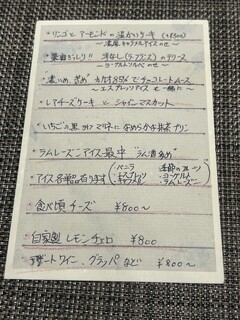 ・リンゴとアーモンドの温かいケーキ (+¥300)
～濃厚キャラメルアイスのせ～
洋なし(ラ・フランス)のテリーヌ
～ヨーグルトソルベのせ～
・濃いめ、カカオ85%でチョコレートムース
～エスプレッソアイスと一緒に～
・レアチーズケーキとシャインマスカット
・いちごと黒
なめらかな抹茶プリン
・ラムレーズンアイス最中
・アイス各単品有ります
(バニラ
エスプレッソ
キャラメル
季節のフルーツ
・ヨーグルト
ラムレーズン)
・食べ頃チーズ ¥800～
・自家製レモンチェロ ¥800
・デザートワイン、グラッパなど ¥800～